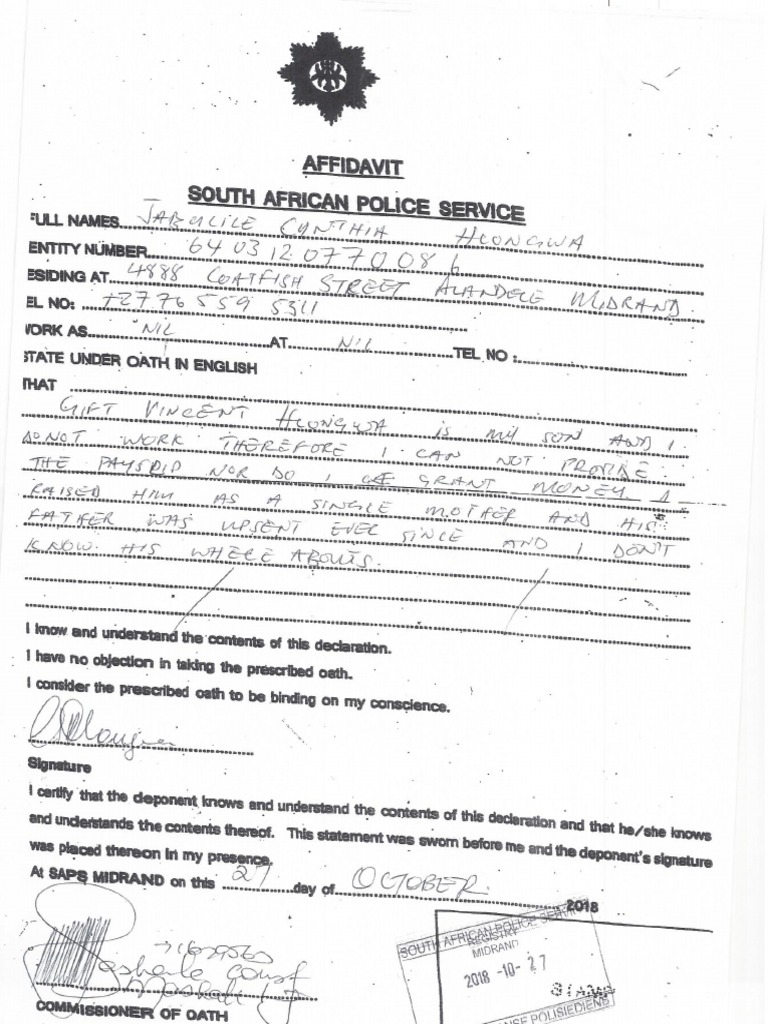 AFFIDAVIT
SOUTH AFRICAN POLICE SERVICE
FULL NAMES JABULILE CYNTHIA HLONGWA
ENTITY NUMBER 64 03 12 077 008 6
ESIDING AT 4888 COATFISH STREET ALANDELE MIDRAND
EL NO: +2776 559 5311
WORK AS NIL AT NIL TEL NO :
STATE UNDER OATH IN ENGLISH
THAT
GIFT VINCENT HLONGWA IS MY SON AND I
DO NOT WORK THEREFORE I CAN NOT PROVIDE
THE PAYSLIP NOR DO I GRANT MONEY I
RAISED HIM AS A SINGLE MOTHER AND HIS
FATHER WAS UPSENT EVER SINCE AND I DON'T
KNOW HIS WHERE ABOUTS.
I know and understand the contents of this declaration.
I have no objection in taking the prescribed oath.
I consider the prescribed oath to be binding on my conscience.
Signature
I certify that the deponent knows and understand the contents of this declaration and that he/she knows
and understands the contents thereof. This statement was sworn before me and the deponent's signature
was placed thereon in my presence.
At SAPS MIDRAND on this 27 day of OCTOBER 2018
SOUTH AFRICAN POLICE SERVICE
REGISTRY
MIDRAND
2018 -10- 27
STAMP
COMMISSIONER OF OATH